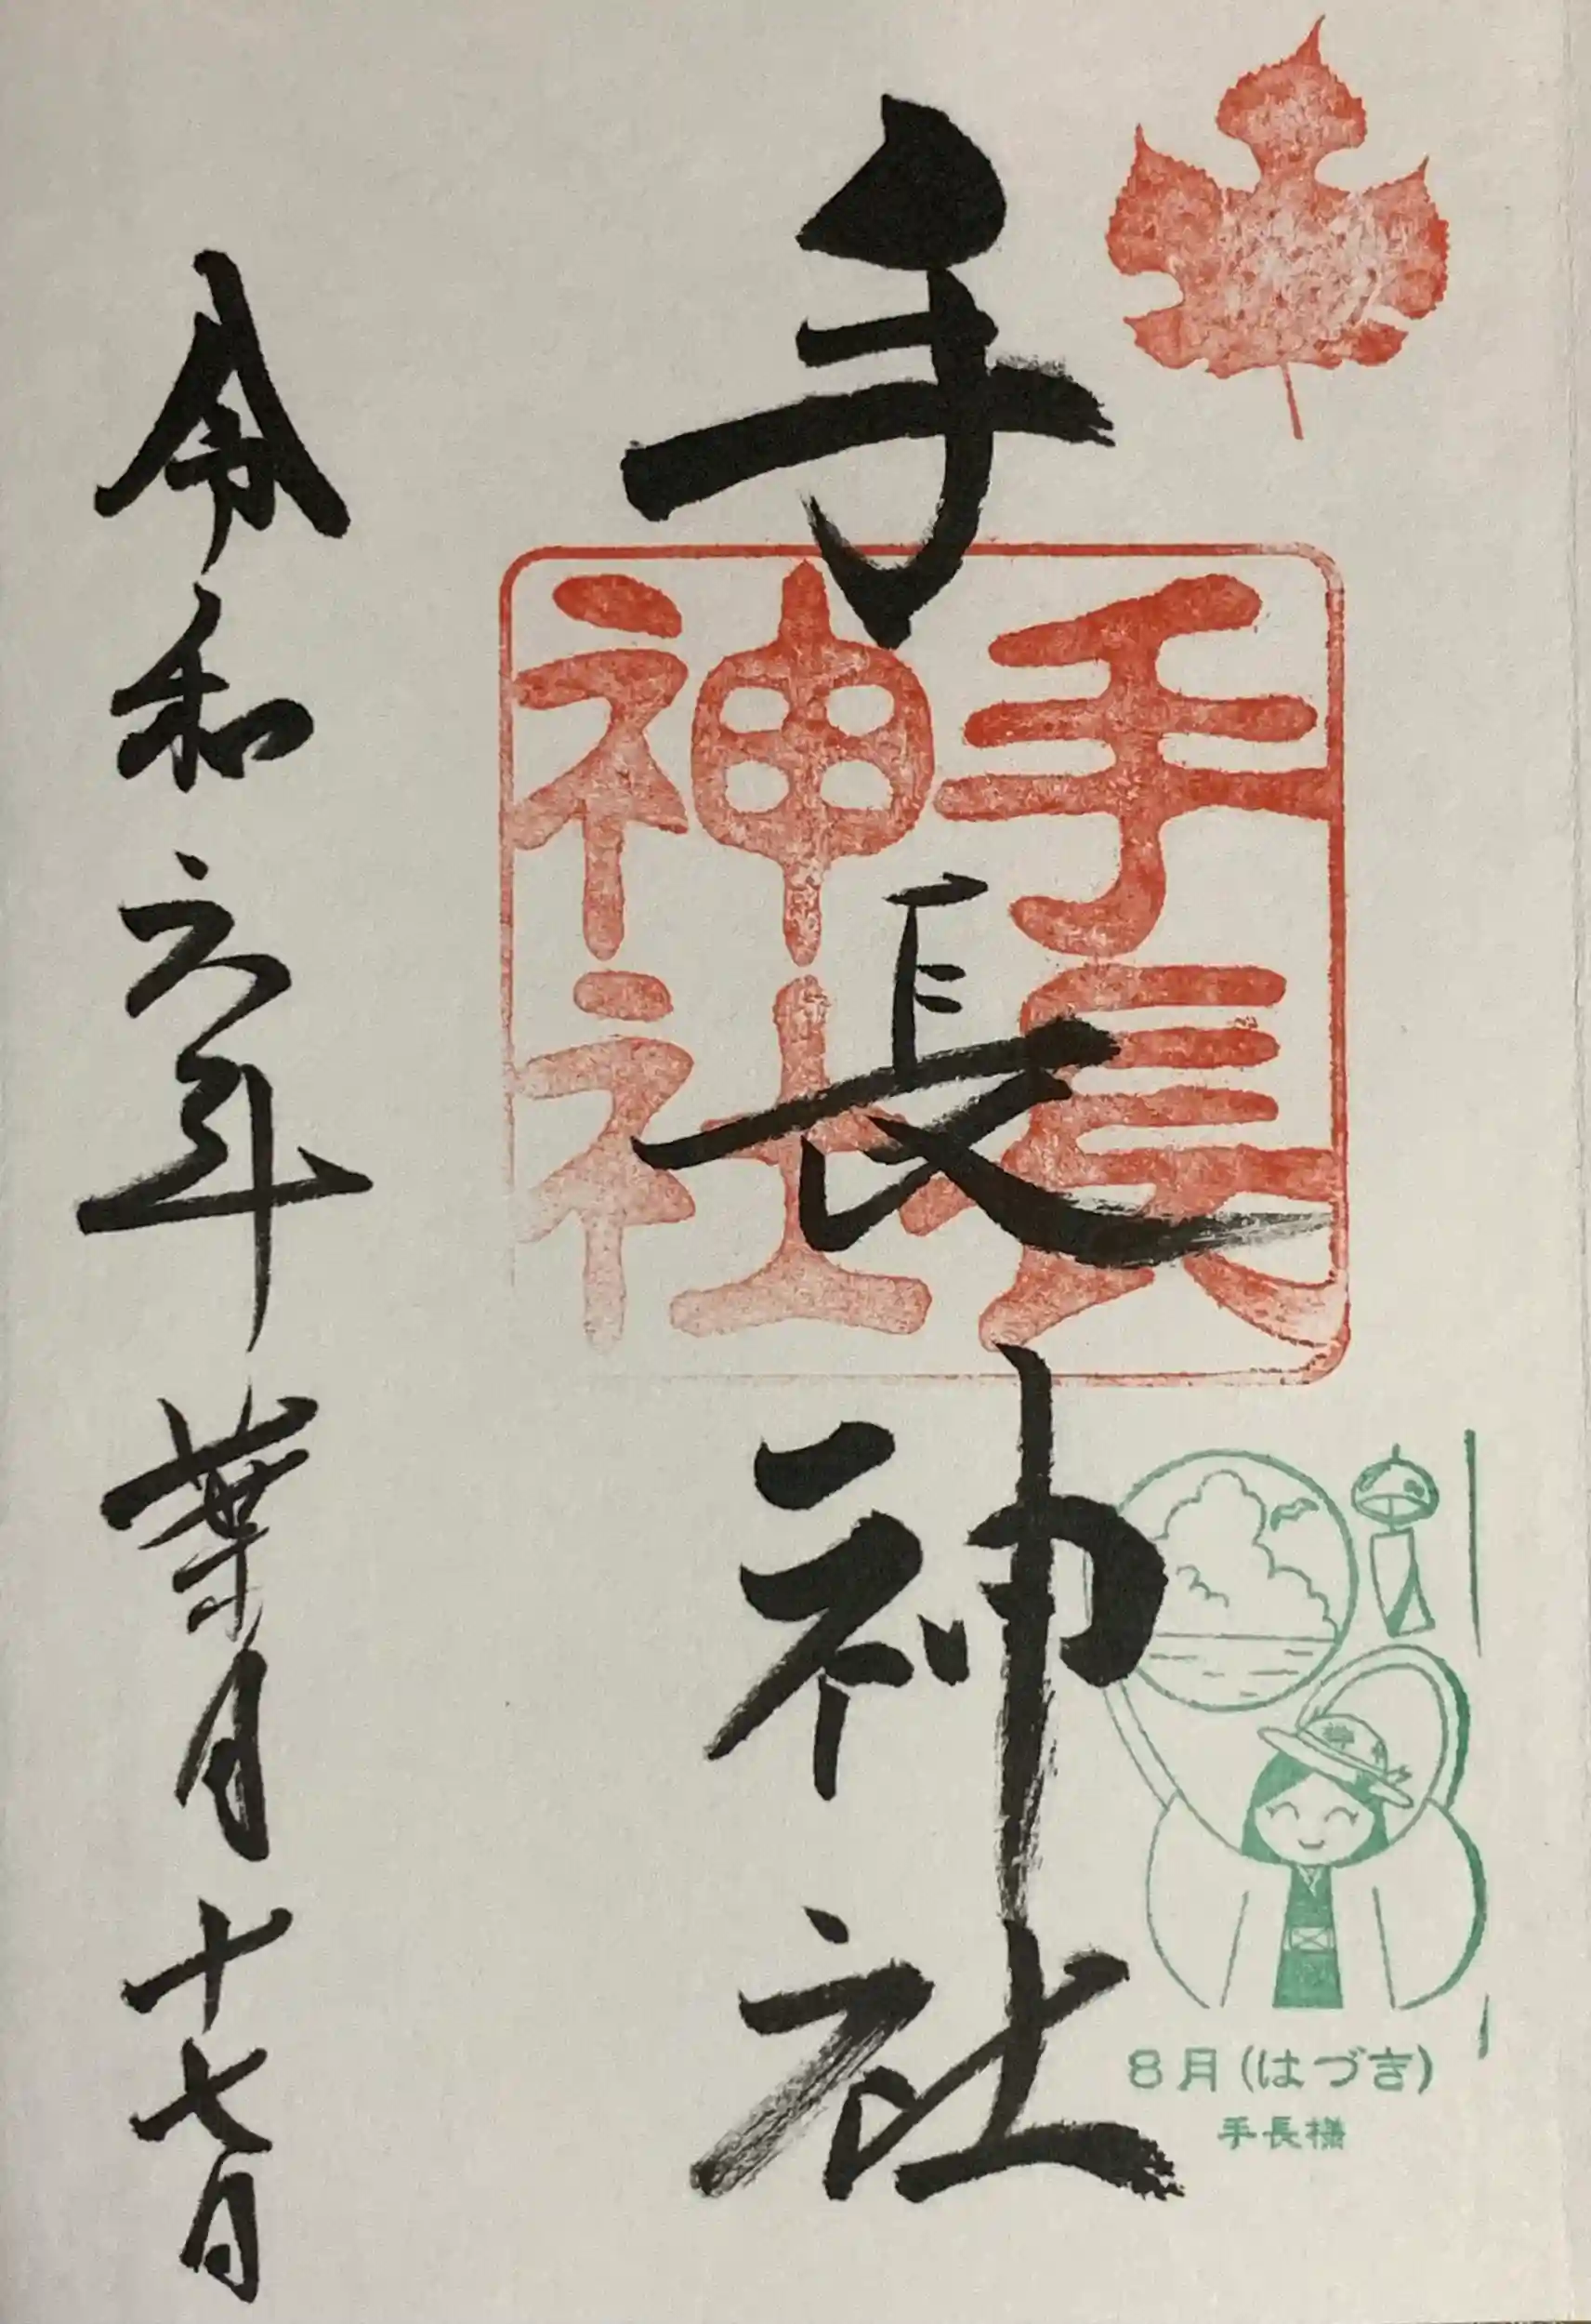 手長神社
手長
神社
令和六年葉月十七日
8月(はづき)
手長様